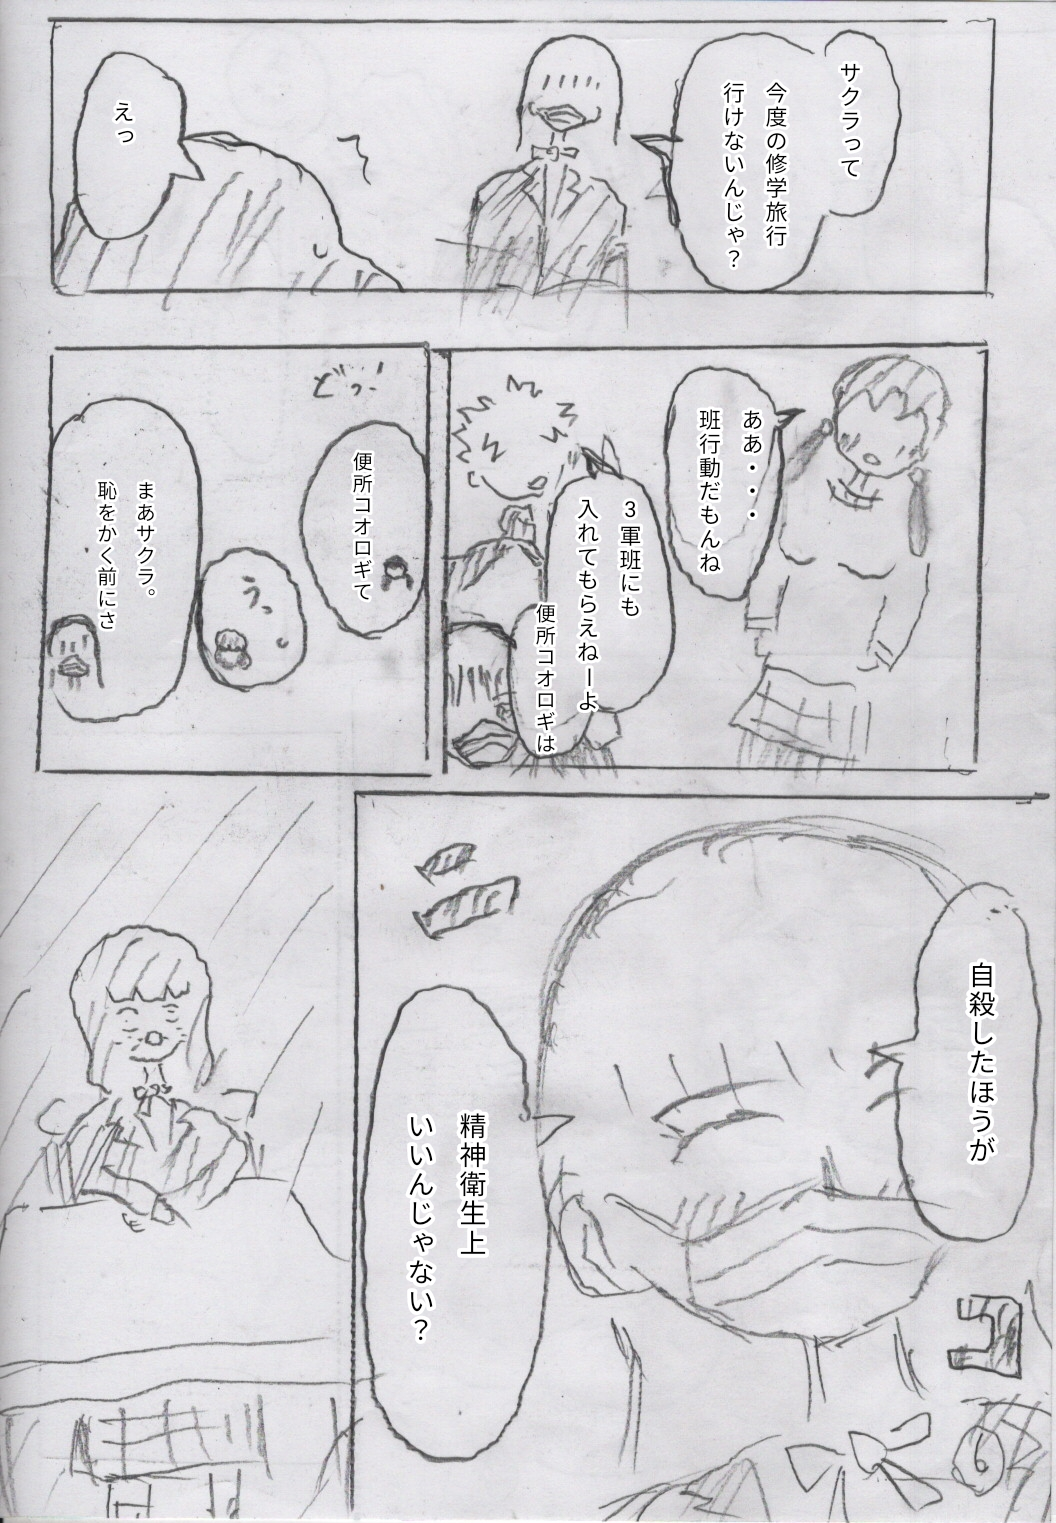 サクラって
今度の修学旅行
行けないんじゃ？
えっ
ああ・・・
班行動だもんね
３軍班にも
入れてもらえねーよ
便所コオロギは
どっ！
便所コオロギて
うっ
まあサクラ。
恥をかく前にさ
自殺したほうが
精神衛生上
いいんじゃない？
ニコ
6